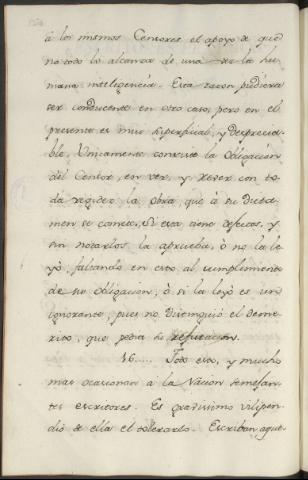 à los mismos Censores el apoyo de que
no todo lo alcanza de una vez la hu-
mana inteligencia. Esta razon pudiera
ser conducente en otro caso, pero en el
presente es mui superficial, y desprecia-
ble. Unicamente consiste la Obligacion
del Censor, en ver, y rever con to-
da rigidez la obra, que à su dicta-
men se comete. Si esta tiene defectos, y
sin notarlos la aprueba, ò no la le-
yò, faltando en esto al cumplimiento
de su obligacion, ò si la leyò es un
ignorante, pues no distinguiò el deme-
rito, que pedia la refutacion.
16.... Todo esto, y mucho
mas ocasionan à la Nacion semejan-
tes escritores. Es gravissimo vilipen-
dio de ella el tolerarlo. Escriban, aque-